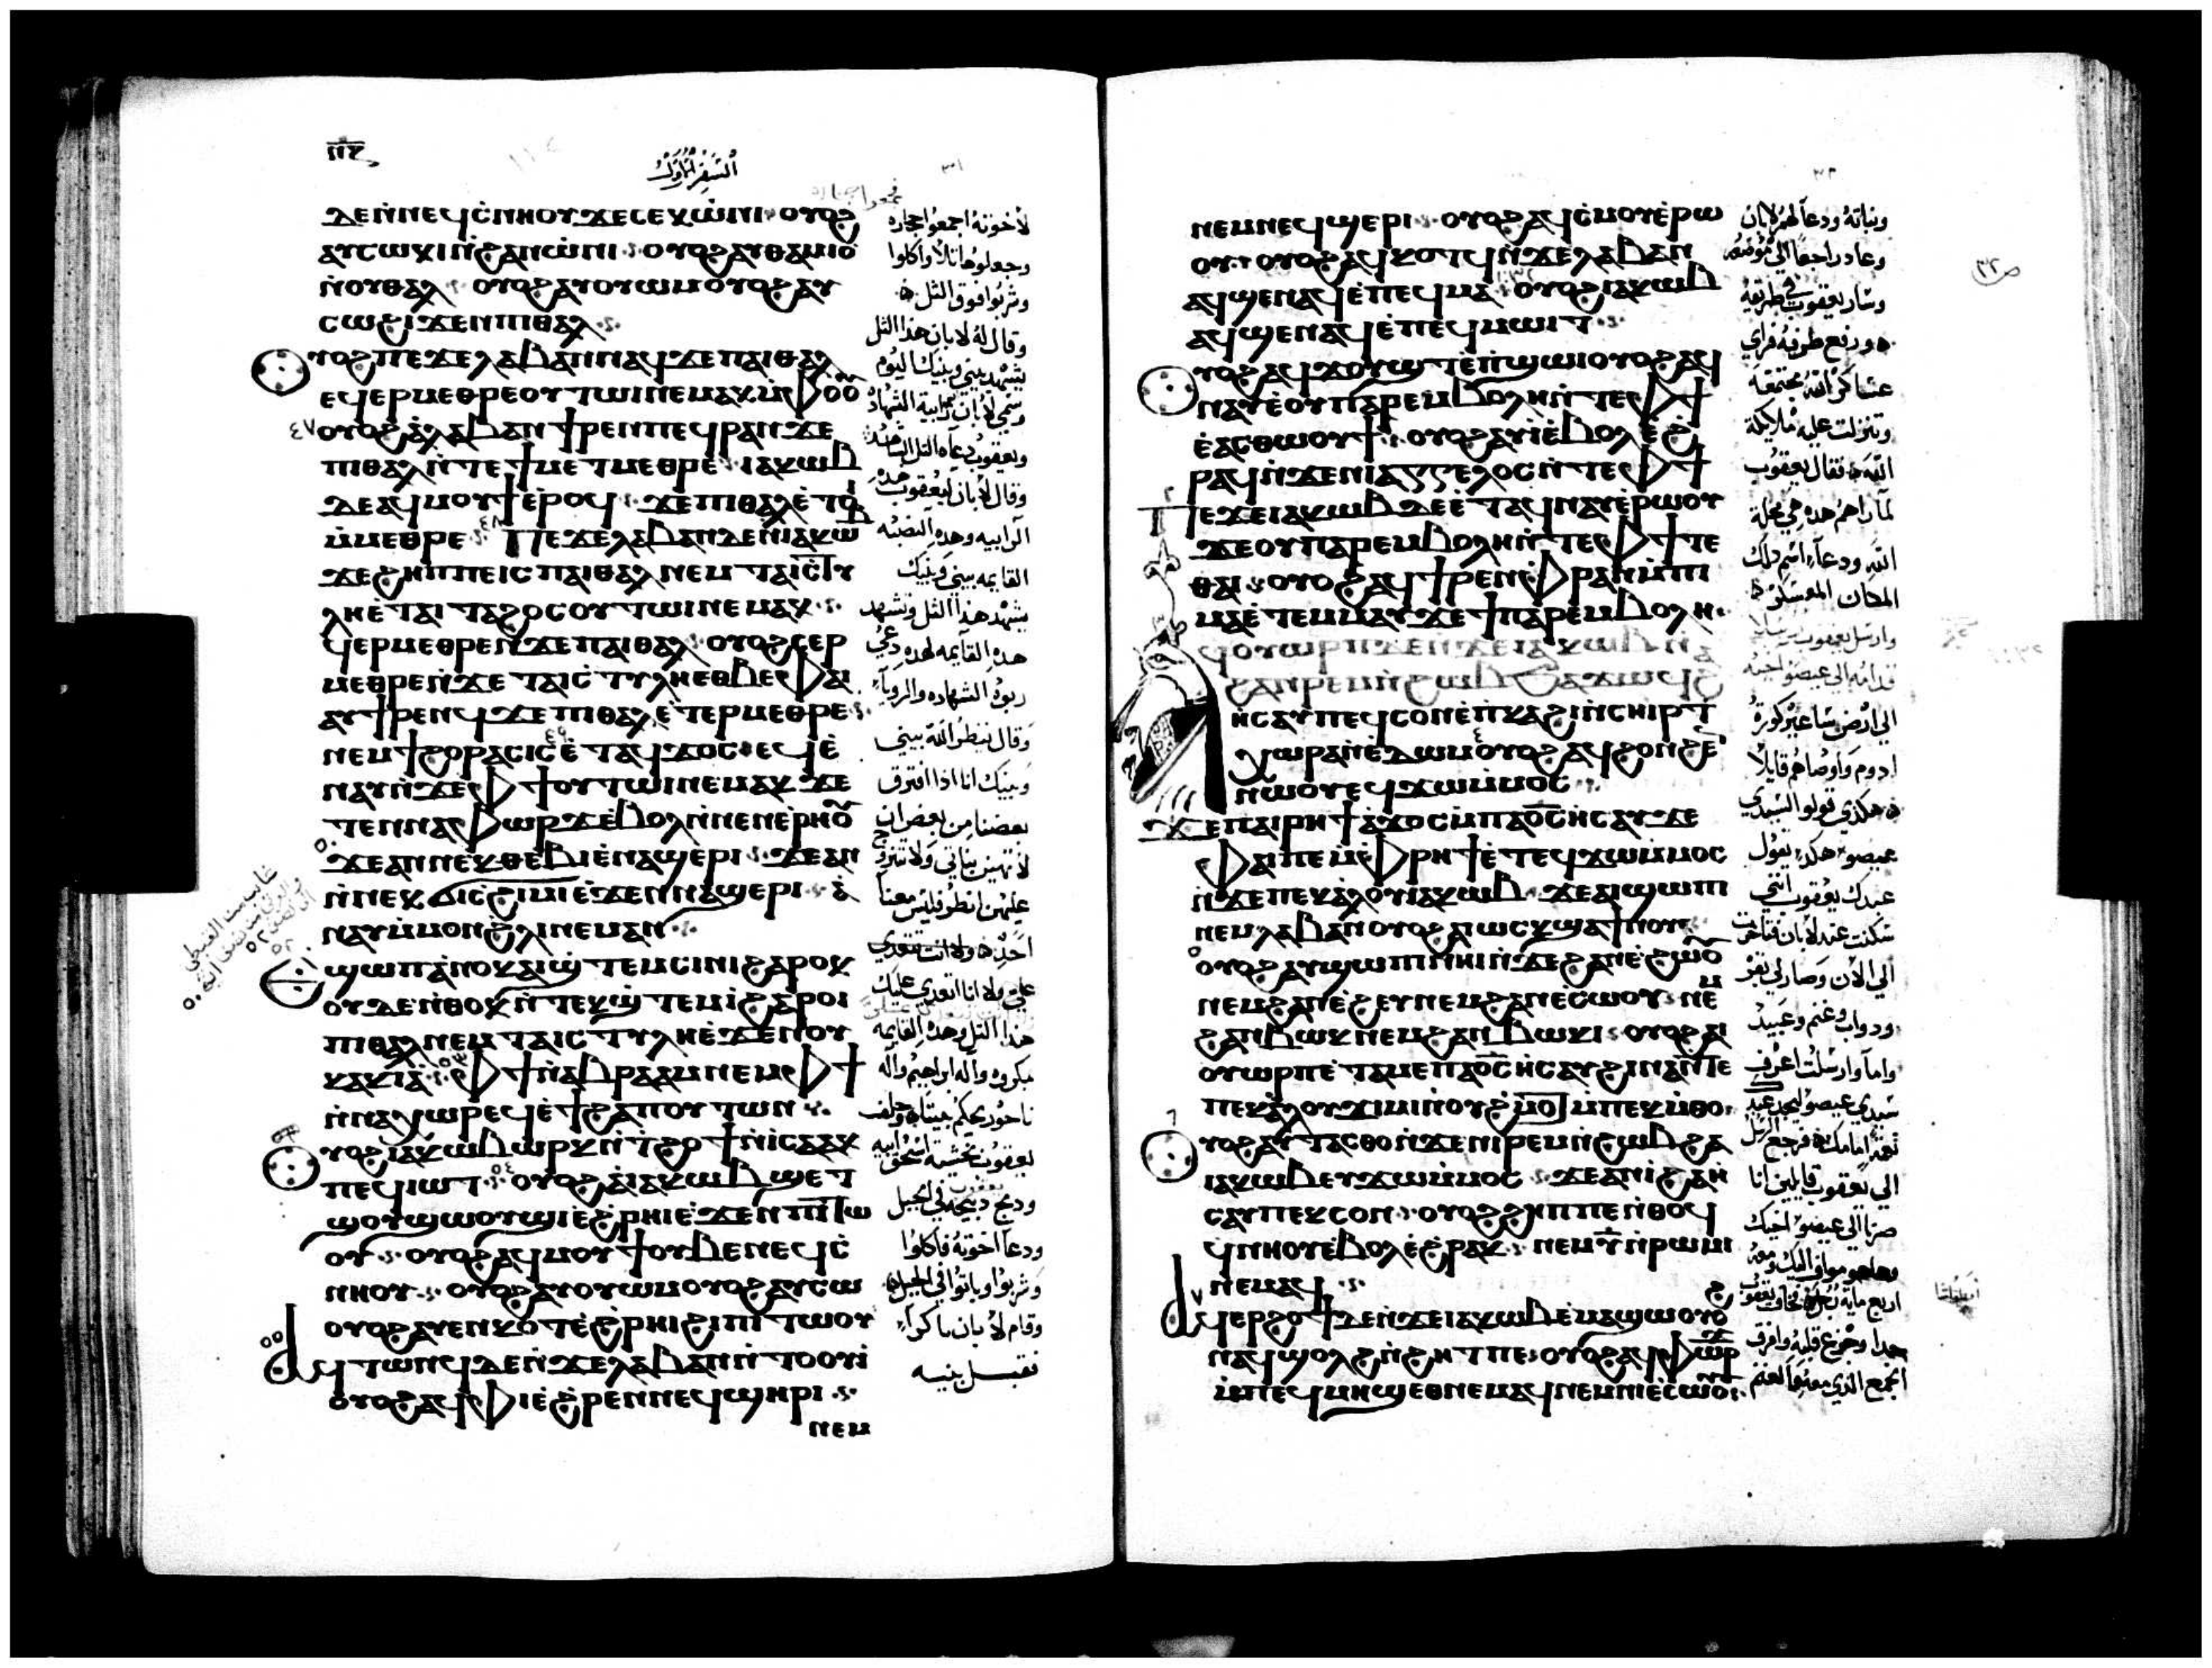 ⲡ̅ⲍ̅
السفر الاول
٣١
ⲇⲉⲛⲛⲉϥⲥ̀ⲛⲏⲟⲩ ϫⲉⲥⲉⲕⲱ̀ⲛⲓ ⲟⲩⲟϩ
ⲁⲩⲥⲱⲕⲓ ⲛ̀ϩⲁⲛⲱ̀ⲛⲓ ⲟⲩⲟϩ ⲁⲩⲑⲁⲙⲓⲟ
ⲛ̀ⲟⲩⲑⲁⲗ ⲟⲩⲟϩ ⲁⲩⲟⲩⲱⲙ ⲟⲩⲟϩ ⲁⲩ
ⲥⲱ ϩⲓϫⲉⲛ ⲡⲓⲑⲁⲗ
ⲟⲩⲟϩ ⲡⲉϫⲉ ⲗⲁⲃⲁⲛ ⲛⲁϥ ϫⲉ ⲡⲁⲓⲑⲁⲗ
ⲉϥⲉⲣⲙⲉⲑⲣⲉ ⲟⲩⲧⲱⲓ ⲛⲉⲙⲁⲕ ⲙ̀ⲫⲟⲟ
ⲟⲩⲟϩ ⲁ̀ⲗⲁⲃⲁⲛ ϯⲣⲉⲛ ⲡⲉϥⲣⲁⲛ ϫⲉ
ⲡⲓⲑⲁⲗ ⲛ̀ⲧⲉ ϯⲙⲉⲧⲙⲉⲑⲣⲉ ⲓⲁⲕⲱⲃ
ⲇⲉ ⲁϥⲙⲟⲩϯ ⲉ̀ⲣⲟϥ ϫⲉ ⲡⲓⲑⲁⲗ ⲉ̀ⲧⲟⲓ
ⲙ̀ⲙⲉⲑⲣⲉ ⲡⲉϫⲉ ⲗⲁⲃⲁⲛ ⲇⲉ ⲛ̀ⲓⲁⲕⲱⲃ
ϫⲉ ϩⲏⲡⲡⲉ ⲓⲥ ⲡⲁⲓⲑⲁⲗ ⲛⲉⲙ ⲧⲁⲓⲥⲧⲩ
ⲗⲏ ⲉ̀ⲧⲁⲓⲧⲁϩⲟⲥ ⲟⲩⲧⲱⲓ ⲛⲉⲙⲁⲕ
ϥⲉⲣⲙⲉⲑⲣⲉ ⲛ̀ϫⲉ ⲡⲁⲓⲑⲁⲗ ⲟⲩⲟϩ ⲥⲉⲣ
ⲙⲉⲑⲣⲉ ⲛ̀ϫⲉ ⲧⲁⲓⲥⲧⲩⲗⲏ ⲉⲑⲃⲉ ⲫⲁⲓ
ⲁⲩϯⲣⲉⲛϥ ϫⲉ ⲡⲓⲑⲁⲗ ⲉ̀ⲧⲉⲣⲙⲉⲑⲣⲉ
ⲛⲉⲙ ϯϩⲟⲣⲁⲥⲓⲥ ⲉ̀ⲧⲁϥϫⲟⲥ ⲉϥⲉ̀
ⲛⲁⲩ ⲛ̀ϫⲉ ⲫϯ ⲟⲩⲧⲱⲓ ⲛⲉⲙⲁⲕ ϫⲉ
ⲧⲉⲛⲛⲁⲫⲱⲣϫ ⲉ̀ⲃⲟⲗ ⲛ̀ⲛⲉⲛⲉⲣⲏⲟⲩ
ϫⲉ ⲁⲛ ⲛⲉⲕⲑⲉⲃⲓⲉ ⲛⲁϣⲉⲣⲓ ϫⲉ ⲁⲛ
ⲛ̀ⲛⲉⲕϭⲓⲥϩⲓⲙⲓ ⲉ̀ϫⲉⲛ ⲛⲁϣⲉⲣⲓ ⲁ̀
ⲛⲁⲩ ⲙ̀ⲙⲟⲛ ϩⲗⲓ ⲛⲉⲙⲁⲛ
ⲉϣⲱⲡ ⲁ̀ⲛⲟⲕ ⲁⲓϣⲧⲉⲙⲥⲓⲛⲓ ϩⲁⲣⲟⲕ
ⲟⲩⲇⲉ ⲛ̀ⲑⲟⲕ ⲛ̀ⲧⲉⲕϣⲧⲉⲙⲓ̀ ϩⲁⲣⲟⲓ
ⲡⲓⲑⲁⲗ ⲛⲉⲙ ⲧⲁⲓⲥⲧⲩⲗⲏ ⲉ̀ϫⲉⲛ ⲟⲩ
ⲕⲁⲕⲓⲁ̀ ⲫϯ ⲛ̀ⲁⲃⲣⲁⲁⲙ ⲛⲉⲙ ⲫϯ
ⲛ̀ⲛⲁⲭⲱⲣ ⲉϥⲉ̀ϯϩⲁⲡ ⲟⲩⲧⲱⲛ
ⲟⲩⲟϩ ⲓⲁⲕⲱⲃ ⲱⲣⲕ ⲛ̀ⲧϩⲟϯ ⲛ̀ⲓⲥⲁⲁⲕ
ⲡⲉϥⲓⲱⲧ ⲟⲩⲟϩ ⲁ̀ⲓⲁⲕⲱⲃ ϣⲉⲧ
ϣⲟⲩϣⲱⲟⲩϣⲓ ⲉ̀ϩⲣⲏⲓ ⲉ̀ϫⲉⲛ ⲡⲓⲧⲱ
ⲟⲩ ⲟⲩⲟϩ ⲁϥⲙⲟⲩϯ ⲟⲩⲃⲉ ⲛⲉϥⲥ̀
ⲛⲏⲟⲩ ⲟⲩⲟϩ ⲁⲩⲟⲩⲱⲙ ⲟⲩⲟϩ ⲁⲩⲥⲱ
ⲟⲩⲟϩ ⲁⲩⲉⲛⲕⲟⲧ ⲉ̀ϩⲣⲏⲓ ϩⲓ ⲡⲓⲧⲱⲟⲩ
ⲁϥⲧⲱⲛϥ ⲇⲉ ⲛ̀ϫⲉ ⲗⲁⲃⲁⲛ ⲛ̀ⲧⲟⲟⲩⲓ̀
ⲟⲩⲟϩ ⲁϥϯⲫⲓ ⲉ̀ϩⲣⲉⲛ ⲛⲉϥϣⲏⲣⲓ
ⲛⲉⲙ
لأخوته اجمعوا حجاره
وجعلوها تلا واكلوا
وشربوا فوق التل
وقال له لابان هذا التل
يشهد بيني وبينك اليوم
وقال لابان ليعقوب
القايمه بيني وبينك
يشهد هذا التل وتشهد
هذه القايمه لهذه دعي
ربوة الشهاده والرويا
وقال ينظر الله بيني
وبينك انا اذا افترق
بعضنا من بعض ان
لا تهين بناتي ولا تتزوج
عليهن انظر فليس معنا
احد
علي ولا انا اتعدي عليك
هذا التل وهذه القايمه
مكروه واله ابراهيم واله
ناحور يحكم بيننا وحلف
يعقوب بخشية اسحق ابيه
وذبح ذبيحه في الجبل
ودعا اخوته فاكلوا
وشربوا وباتوا في الجبل
وقام لابان باكرا
فقبل بنيه
٣٢
ⲛⲉⲙ ⲛⲉϥϣⲉⲣⲓ ⲟⲩⲟϩ ⲁϥⲥ̀ⲙⲟⲩ ⲉ̀ⲣⲱ
ⲟⲩ ⲟⲩⲟϩ ⲁϥⲕⲟⲧϥ ⲛ̀ϫⲉ ⲗⲁⲃⲁⲛ
ⲁϥϣⲉⲛⲁϥ ⲉ̀ⲡⲉϥⲙⲁ ⲟⲩⲟϩ ⲓⲁⲕⲱⲃ
ⲁϥϣⲉⲛⲁϥ ⲉ̀ⲡⲉϥⲙⲱⲓⲧ
ⲟⲩⲟϩ ⲁϥϫⲟⲩϣⲧ ⲉ̀ⲡϣⲱⲓ ⲟⲩⲟϩ ⲁϥ
ⲛⲁⲩ ⲉ̀ⲟⲩⲡⲁⲣⲉⲙⲃⲟⲗⲏ ⲛ̀ⲧⲉ ⲫϯ
ⲉ̀ⲁⲥⲑⲱⲟⲩϯ ⲟⲩⲟϩ ⲁⲩⲓ̀ ⲉ̀ⲃⲟⲗ ⲉ̀ϩ
ⲣⲁϥ ⲛ̀ϫⲉ ⲛⲓⲁⲅⲅⲉⲗⲟⲥ ⲛ̀ⲧⲉ ⲫϯ
ⲡⲉϫⲉ ⲓⲁⲕⲱⲃ ⲇⲉ ⲉ̀ⲧⲁϥⲛⲁⲩ ⲉ̀ⲣⲱⲟⲩ
ϫⲉ ⲟⲩⲡⲁⲣⲉⲙⲃⲟⲗⲏ ⲛ̀ⲧⲉ ⲫϯ ⲧⲉ
ⲑⲁⲓ ⲟⲩⲟϩ ⲁϥϯⲣⲉⲛ ⲫⲣⲁⲛ ⲙ̀ⲡⲓ
ⲙⲁ ⲉ̀ⲧⲉⲙⲙⲁⲩ ϫⲉ ϯⲡⲁⲣⲉⲙⲃⲟⲗⲏ
ⲁϥⲟⲩⲱⲣⲡ ⲇⲉ ⲛ̀ϫⲉ ⲓⲁⲕⲱⲃ ⲛ̀
ϩⲁⲛⲣⲉⲙⲛ̀ϩⲱⲃ ϧⲁϫⲱϥ ϩⲁ
ⲏⲥⲁⲩ ⲡⲉϥⲥⲟⲛ ⲉ̀ⲡⲕⲁϩⲓ ⲛ̀ⲥⲏⲓⲣ ⲧ
ⲭⲱⲣⲁ ⲛ̀ⲉ̀ⲇⲱⲙ ⲟⲩⲟϩ ⲁϥϩⲟⲛϩⲉⲛ
ⲛⲱⲟⲩ ⲉϥϫⲱ ⲙ̀ⲙⲟⲥ
ϫⲉ ⲡⲁⲓⲣⲏϯ ⲁ̀ϫⲟⲥ ⲙ̀ⲡⲁⲟ̅ⲥ̅ ⲏⲥⲁⲩ ϫⲉ
ⲫⲁⲓ ⲡⲉ ⲙ̀ⲫⲣⲏϯ ⲉ̀ⲧⲉϥϫⲱ ⲙ̀ⲙⲟⲥ
ⲛ̀ϫⲉ ⲡⲉⲕⲁ̀ⲗⲟⲩ ⲓⲁⲕⲱⲃ ϫⲉ ⲁⲓϣⲱⲡⲓ
ⲛⲉⲙ ⲗⲁⲃⲁⲛ ⲟⲩⲟϩ ⲁⲓⲱⲥⲕ ϣⲁ ϯⲛⲟⲩ
ⲟⲩⲟϩ ⲁⲩϣⲱⲡⲓ ⲛⲏⲓ ⲛ̀ϫⲉ ϩⲁⲛⲉ̀ϩⲱⲟⲩ
ⲛⲉⲙ ϩⲁⲛⲉ̀ϩⲉⲩ ⲛⲉⲙ ϩⲁⲛⲉ̀ⲥⲱⲟⲩ ⲛⲉⲙ
ϩⲁⲛⲃⲱⲕ ⲛⲉⲙ ϩⲁⲛⲃⲱⲕⲓ ⲟⲩⲟϩ ⲁⲓ
ⲟⲩⲱⲣⲡ ⲉ̀ⲧⲁⲙⲉ ⲡⲁⲟ̅ⲥ̅ ⲏⲥⲁⲩ ϩⲓⲛⲁ ⲛ̀ⲧⲉ
ⲡⲉⲕⲁ̀ⲗⲟⲩ ϫⲓⲙⲓ ⲛ̀ⲟⲩϩⲙⲟⲧ ⲙ̀ⲡⲉⲕⲙ̀ⲑⲟ
ⲟⲩⲟϩ ⲁⲩⲧⲁⲥⲑⲟ ⲛ̀ϫⲉ ⲛⲓⲣⲉⲙⲛ̀ϩⲱⲃ ϩⲁ
ⲓⲁⲕⲱⲃ ⲉⲩϫⲱ ⲙ̀ⲙⲟⲥ ϫⲉ ⲁⲛⲓ̀ ϩⲁ ⲏ̀
ⲥⲁⲩ ⲡⲉⲕⲥⲟⲛ ⲟⲩⲟϩ ϩⲏⲡⲡⲉ ⲛ̀ⲑⲟϥ
ϥ̀ⲛⲏⲟⲩ ⲉ̀ⲃⲟⲗ ⲉ̀ϩⲣⲁⲕ ⲛⲉⲙ ⲩ̅ ⲛ̀ⲣⲱⲙⲓ
ⲛⲉⲙⲁϥ
ⲁϥⲉⲣϩⲟϯ ⲇⲉ ⲛ̀ϫⲉ ⲓⲁⲕⲱⲃ ⲉ̀ⲙⲁϣⲱ ⲟⲩⲟϩ
ⲛⲁϥϣⲟⲗϩ ⲛ̀ϩⲏⲧ ⲡⲉ ⲟⲩⲟϩ ⲁϥⲫⲱⲣϫ
ⲙ̀ⲡⲉϥⲙⲏϣ ⲉⲑⲛⲉⲙⲁϥ ⲛⲉⲙ ⲛⲓⲉ̀ⲥⲱⲟⲩ
وبناته ودعا لهم لابان
وعاد راجعا الي موضعه
وسار يعقوب في طريقه
ورفع طرفه فراي
عساكر الله مجتمعة
وتنزلت عليه ملايكة
الله فقال يعقوب
لما راهم هذه هي محلة
الله ودعا اسم ذلك
المكان المعسكر
وارسل يعقوب رسلا
قدامه الي عيصو اخيه
الي ارض ساعير كورة
ادوم واوصاهم قايلا
هكذي قولوا لسيدي
عيصو هكذا يقول
عبدك يعقوب انني
سكنت عند لابان فتاخرت
الي الان وصار لي بقر
ودواب وغنم وعبيد
واما وارسلت اعرف
سيدي عيصو ليجد عبدك
نعمة امامك فرجع الرسل
الي يعقوب قايلين انا
صرنا الي عيصو اخيك
وهاهو موافي اليك ومعه
اربع ماية رجل فخاف يعقوب
جدا وجزع قلبه وافرق
الجمع الذي معه والغنم